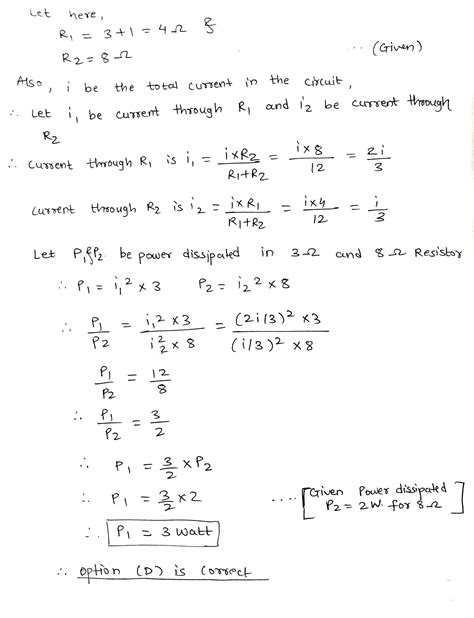 Let here,
R1 = 3+1 = 4Ω &
R2 = 8Ω ... (Given)
Also, i be the total current in the circuit,
∴ Let i1 be current through R1 and i2 be current through
R2
∴ Current through R1 is i1 = i×R2/R1+R2 = i×8/12 = 2i/3
Current through R2 is i2 = i×R1/R1+R2 = i×4/12 = i/3
Let P1 & P2 be power dissipated in 3Ω and 8Ω Resistor
∴ P1 = i1² × 3 P2 = i2² × 8
∴ P1/P2 = i1² × 3/i2² × 8 = (2i/3)² × 3/(i/3)² × 8
P1/P2 = 12/8
∴ P1/P2 = 3/2
∴ P1 = 3/2 × P2
∴ P1 = 3/2 × 2 .... [Given Power dissipated
P2 = 2W. for 8Ω]
∴ P1 = 3 watt
∴ option (D) is correct